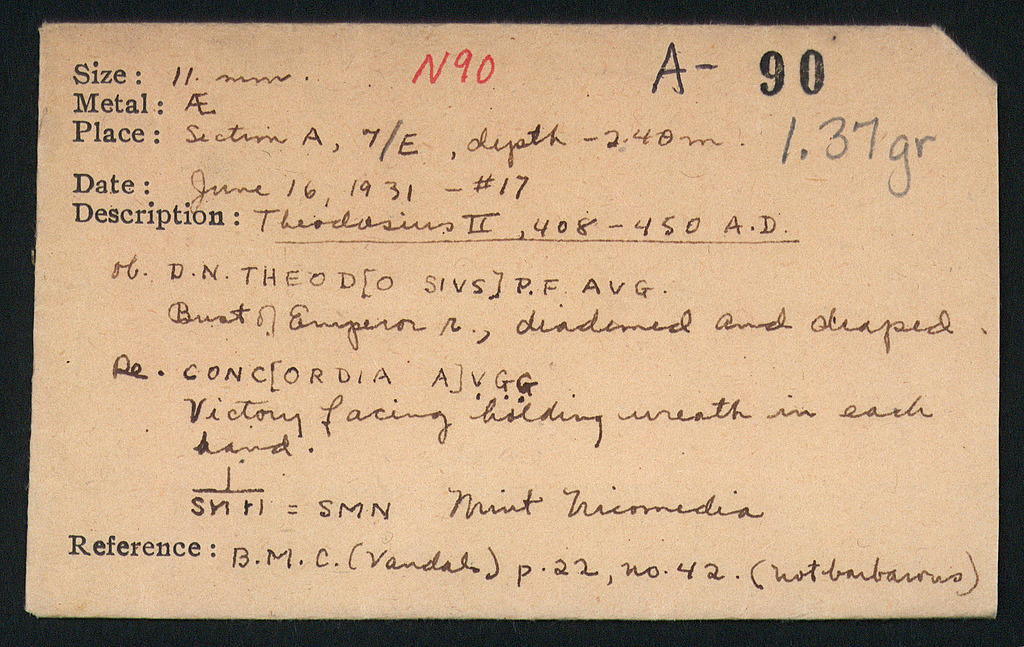 Size: 11. mm. N90 A- 90
Metal: Æ
Place: Section A, 7/E, depth -2.40 m. 1.37gr
Date: June 16, 1931 - #17
Description: Theodosius II, 408-450 A.D.
ob. D.N. THEOD[O SIVS] P.F. AVG.
Bust of Emperor r., diademed and draped.
Re. CONC[ORDIA A]ṾG̣G̣
Victory facing holding wreath in each
hand.
SMN = SMN Mint Nicomedia
Reference: B.M.C. (Vandals) p.22, no.42. (not barbarous)